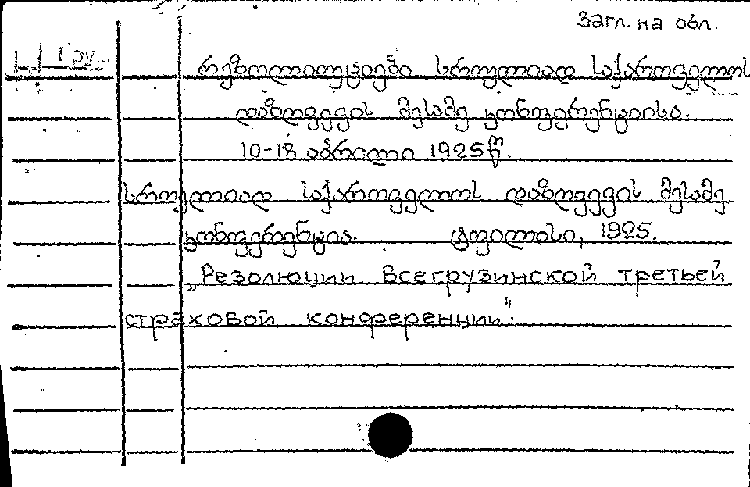 Загл. на обл.
რეზოლიუციები სრულიად საქართველოს
დაზღვევის მესამე კონფერენციისა.
10-18 აპრილი 1925წ.
სრულიად საქართველოს დაზღვევის მესამე
კონფერენცია. ტფილისი, 1925.
„Резолюции Всегрузинской третьей
страховой конференции".